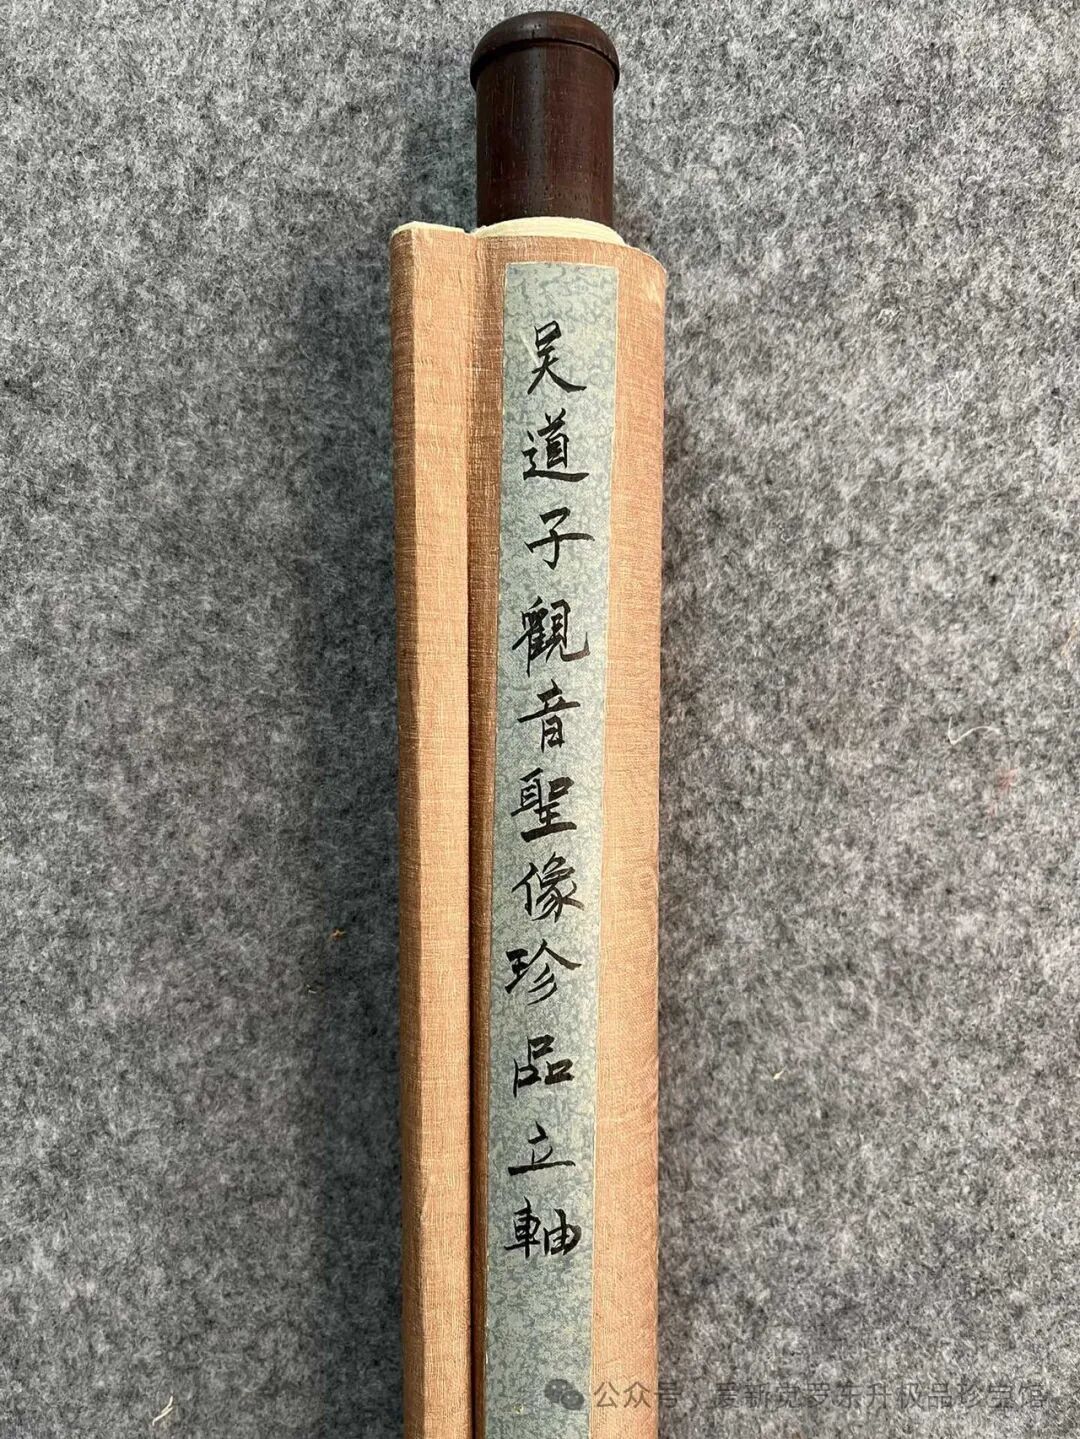 吴道子觀音聖像珍品立軸
公众号·爱新觉罗东升极品珍宝馆